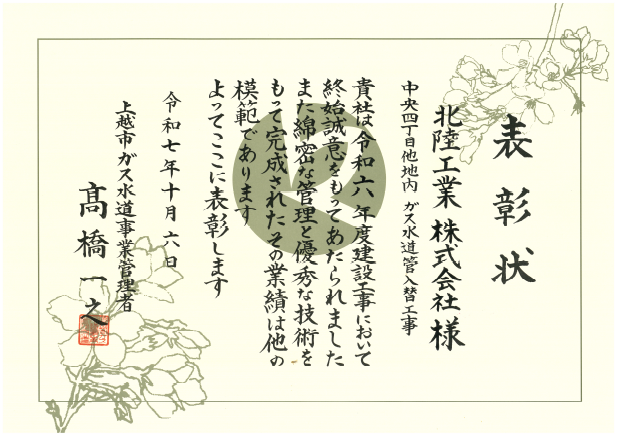 表彰状
北陸工業株式会社様
中央四丁目他地内 ガス水道管入替工事
貴社は令和六年度建設工事において
終始誠意をもってあたられました
また綿密な管理と優秀な技術を
もって完成されたその業績は他の
模範であります
よってここに表彰します
令和七年十月六日
上越市ガス水道事業管理者
髙橋一之